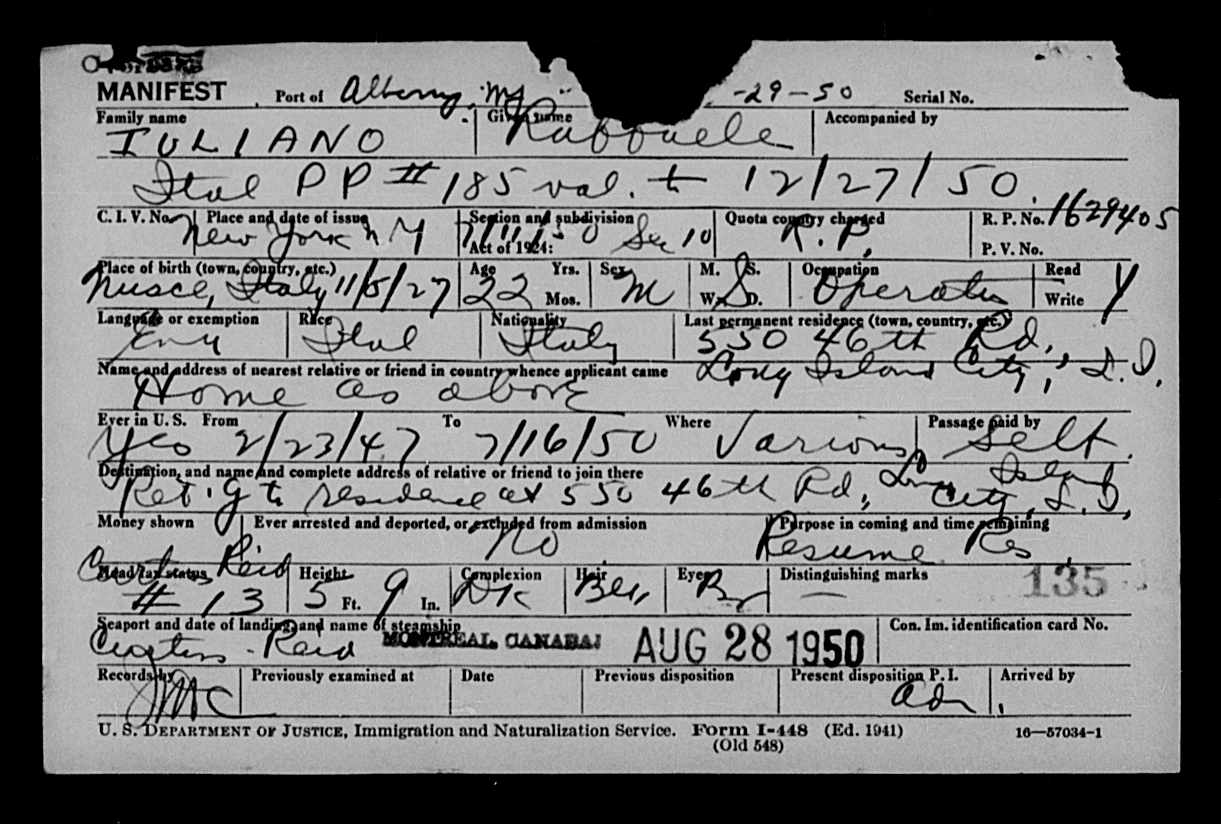 MANIFEST Port of Albany, NY -29-50 Serial No.
Family name Given name Accompanied by
IULIANO Raffaele
Ital PP # 185 val. to 12/27/50.
C. I. V. No. Place and date of issue Section and subdivision Quota country charged R. P. No. 1629405
New York NY Act of 1924: Sec 10 R.P. P. V. No.
Place of birth (town, country, etc.) Age Yrs. Sex M. S. Occupation Read
Nusco, Italy 11/5/27 22 Mos. M W. S D. Operator Write Y
Language or exemption Race Nationality Last permanent residence (town, country, etc.)
Ital Italy 550 46th Rd,
Name and address of nearest relative or friend in country whence applicant came Long Island City, L.I.
Home as above
Ever in U. S. From To Where Passage paid by
Yes 2/23/47 7/16/50 Various Self.
Destination, and name and complete address of relative or friend to join there
Ret'g to residence at 550 46th Rd, Long Island City, L.I,
Money shown Ever arrested and deported, or excluded from admission Purpose in coming and time remaining
No Resume Res.
Head tax status Height Complexion Hair Eyes Distinguishing marks 135
# 13 5 Ft. 9 In. Dk Blk Br —
Seaport and date of landing, and name of steamship Con. Im. identification card No.
MONTREAL, CANADA AUG 28 1950
Records by Previously examined at Date Previous disposition Present disposition P. I. Arrived by
Adm.
U. S. DEPARTMENT OF JUSTICE, Immigration and Naturalization Service. Form I-448 (Ed. 1941) 16—57034-1
(Old 548)